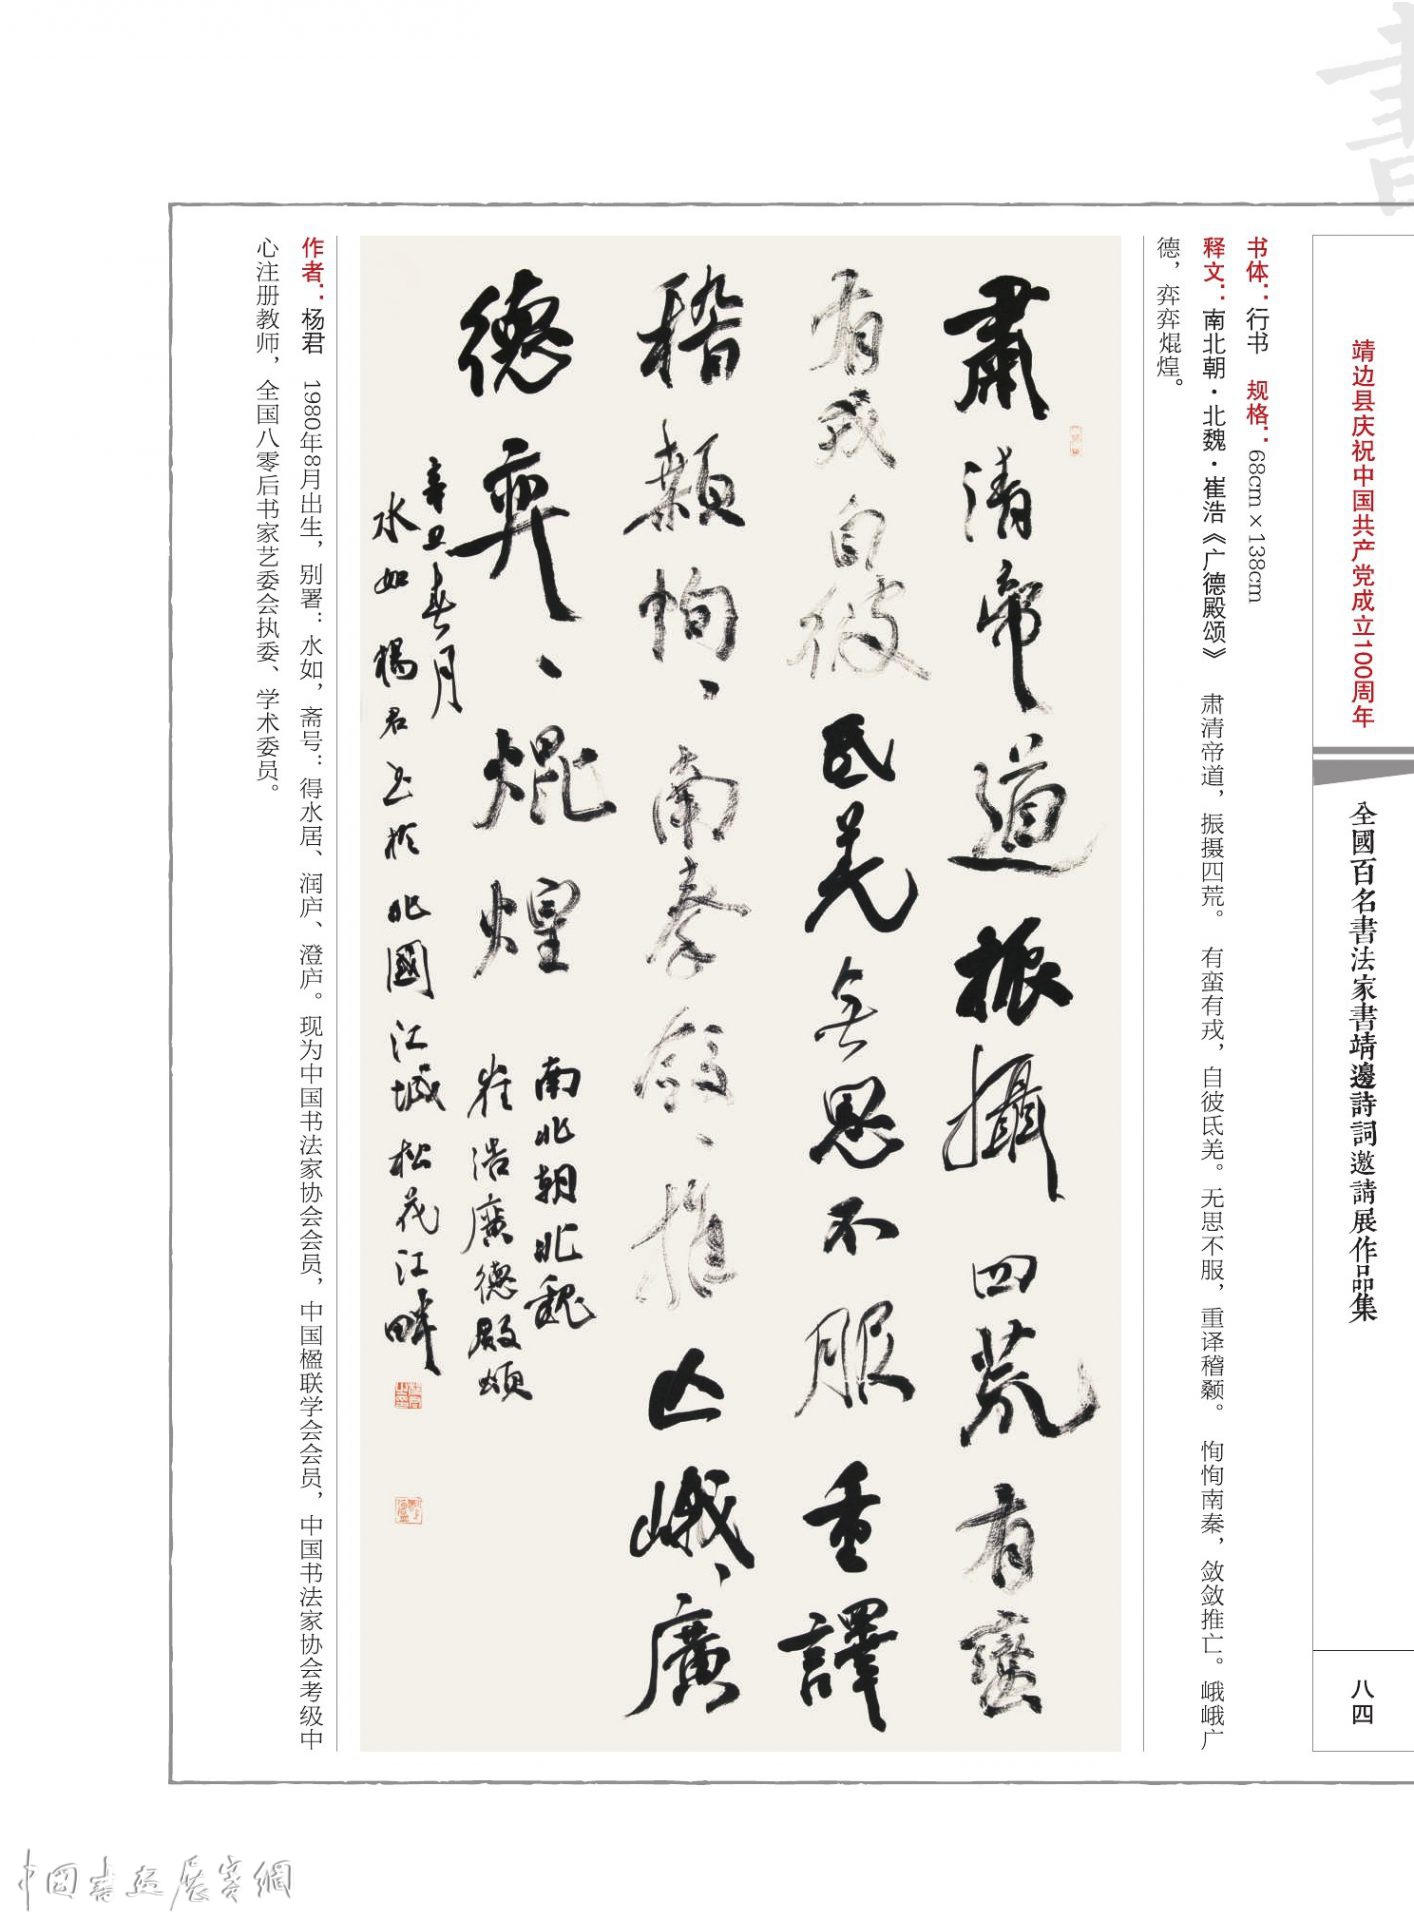 書
靖边县庆祝中国共产党成立100周年
全國百名書法家書靖邊詩詞邀請展作品集
八四
书体：行书　规格：68cm×138cm
释文：南北朝·北魏·崔浩《广德殿颂》　肃清帝道，振摄四荒。　有蛮有戎，自彼氐羌。无思不服，重译稽颡。　恂恂南秦，敛敛推亡。峨峨广
德，弈弈焜煌。
肅清帝道振攝四荒有蠻
有戎自彼氐羌无思不服重譯
稽顙恂、南秦斂、推亡峨、廣
德弈、焜煌
南北朝北魏
崔浩廣德殿頌
辛丑春月
水如楊君书於北國江城松花江畔
作者：杨君　1980年8月出生，别署：水如，斋号：得水居、润庐、澄庐。现为中国书法家协会会员，中国楹联学会会员，中国书法家协会考级中
心注册教师，全国八零后书家艺委会执委、学术委员。
中國書画展賽網